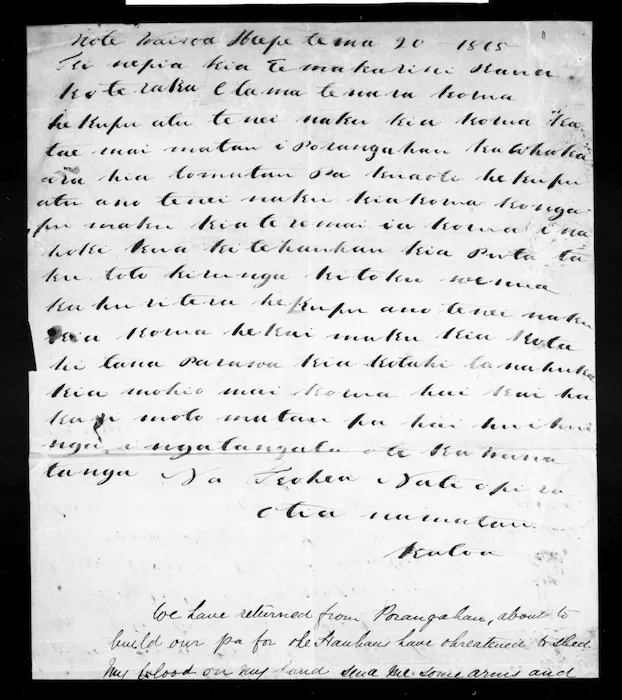 Note Wairoa Hepetema 20 - 1865
Ki nepia kia Temakarini Kana
ko te raka E tama tenara korua
he kupu atu tenei naku kia korua ka
tae mai matau i Porangahau ka whaka
ara hia to matau Pa kuaoti he kupu
atu ano tenei naku kia korua ko nga
pu maku kia tere mai ia korua i na
hoki kua ki te hauhau kia Puta ta
ku toto ki runga ki toku wenua
he kupu ano tenei naku
kia korua he kai maku kia kota
hi tana Paraoa kia kotahi tana huka
kia mohio mai korua hai kai ha
matau pa hai hui hui
nga i nga tangata o te Kawana
tanga Na Teohea Nateopi
otia na matau
katoa
We have returned from Porangahau, about to
build our pa for the Hauhaus have threatened to shed
my blood on my land send me some arms and